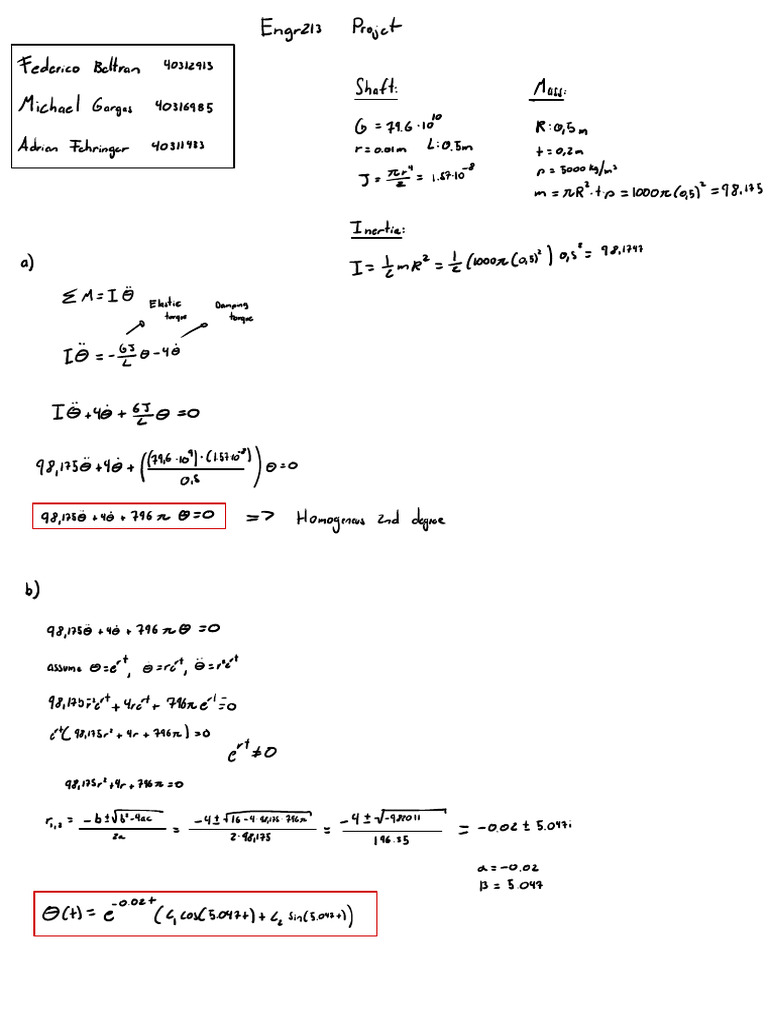 Engr213 Projet
Federico Beltran 40312913
Michael Gargas 40316985
Adrian Fehringer 40311483
Shaft:
G = 79.6 · 10^10
r = 0.01m L: 0.5m
J = πr^4/2 = 1.57·10^-8
Mass:
R: 0,5m
t = 0,2m
ρ = 5000 kg/m^3
m = πR^2 · t · ρ = 1000π(0,5)^2 = 98,175
Inertia:
I = 1/2 mR^2 = 1/2 (1000π(0,5)^2) 0,5^2 = 98,1747
a)
ΣM = Iθ̈
Elastic torque
Damping torque
Iθ̈ = -GJ/L θ - 4θ̇
Iθ̈ + 4θ̇ + GJ/L θ = 0
98,175θ̈ + 4θ̇ + ((79,6·10^9)·(1.57·10^-8)/0,5) θ = 0
98,175θ̈ + 4θ̇ + 796π θ = 0 => Homogenous 2nd degree
b)
98,175θ̈ + 4θ̇ + 796π θ = 0
assume θ = e^rt, θ̇ = re^rt, θ̈ = r^2e^rt
98,175r^2e^rt + 4re^rt + 796π e^rt = 0
e^rt(98,175r^2 + 4r + 796π) = 0
e^rt ≠ 0
98,175r^2 + 4r + 796π = 0
r1,2 = (-b ± √(b^2 - 4ac))/2a = (-4 ± √(16 - 4·98,175·796π))/(2·98,175) = (-4 ± √(-982011))/196.35 = -0.02 ± 5.047i
α = -0.02
β = 5.047
θ(t) = e^-0.02t (C1 cos(5.047t) + C2 sin(5.047t))